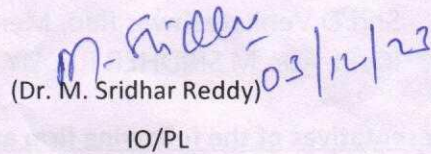 M. Sridhar
03/12/23
(Dr. M. Sridhar Reddy)
IO/PL